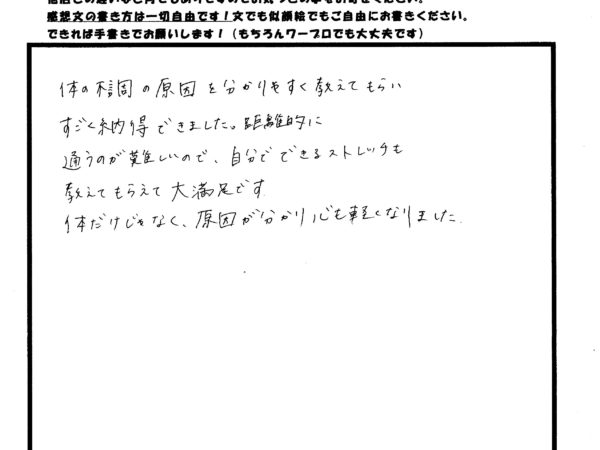 感想文の書き方は一切自由です！文でも似顔絵でもご自由にお書きください。
できれば手書きでお願いします！（もちろんワープロでも大丈夫です）
体の不調の原因を分かりやすく教えてもらい
すごく納得できました。距離的に
通うのが難しいので、自分でできるストレッチも
教えてもらえて大満足です
体だけじゃなく、原因が分かり心も軽くなりました.